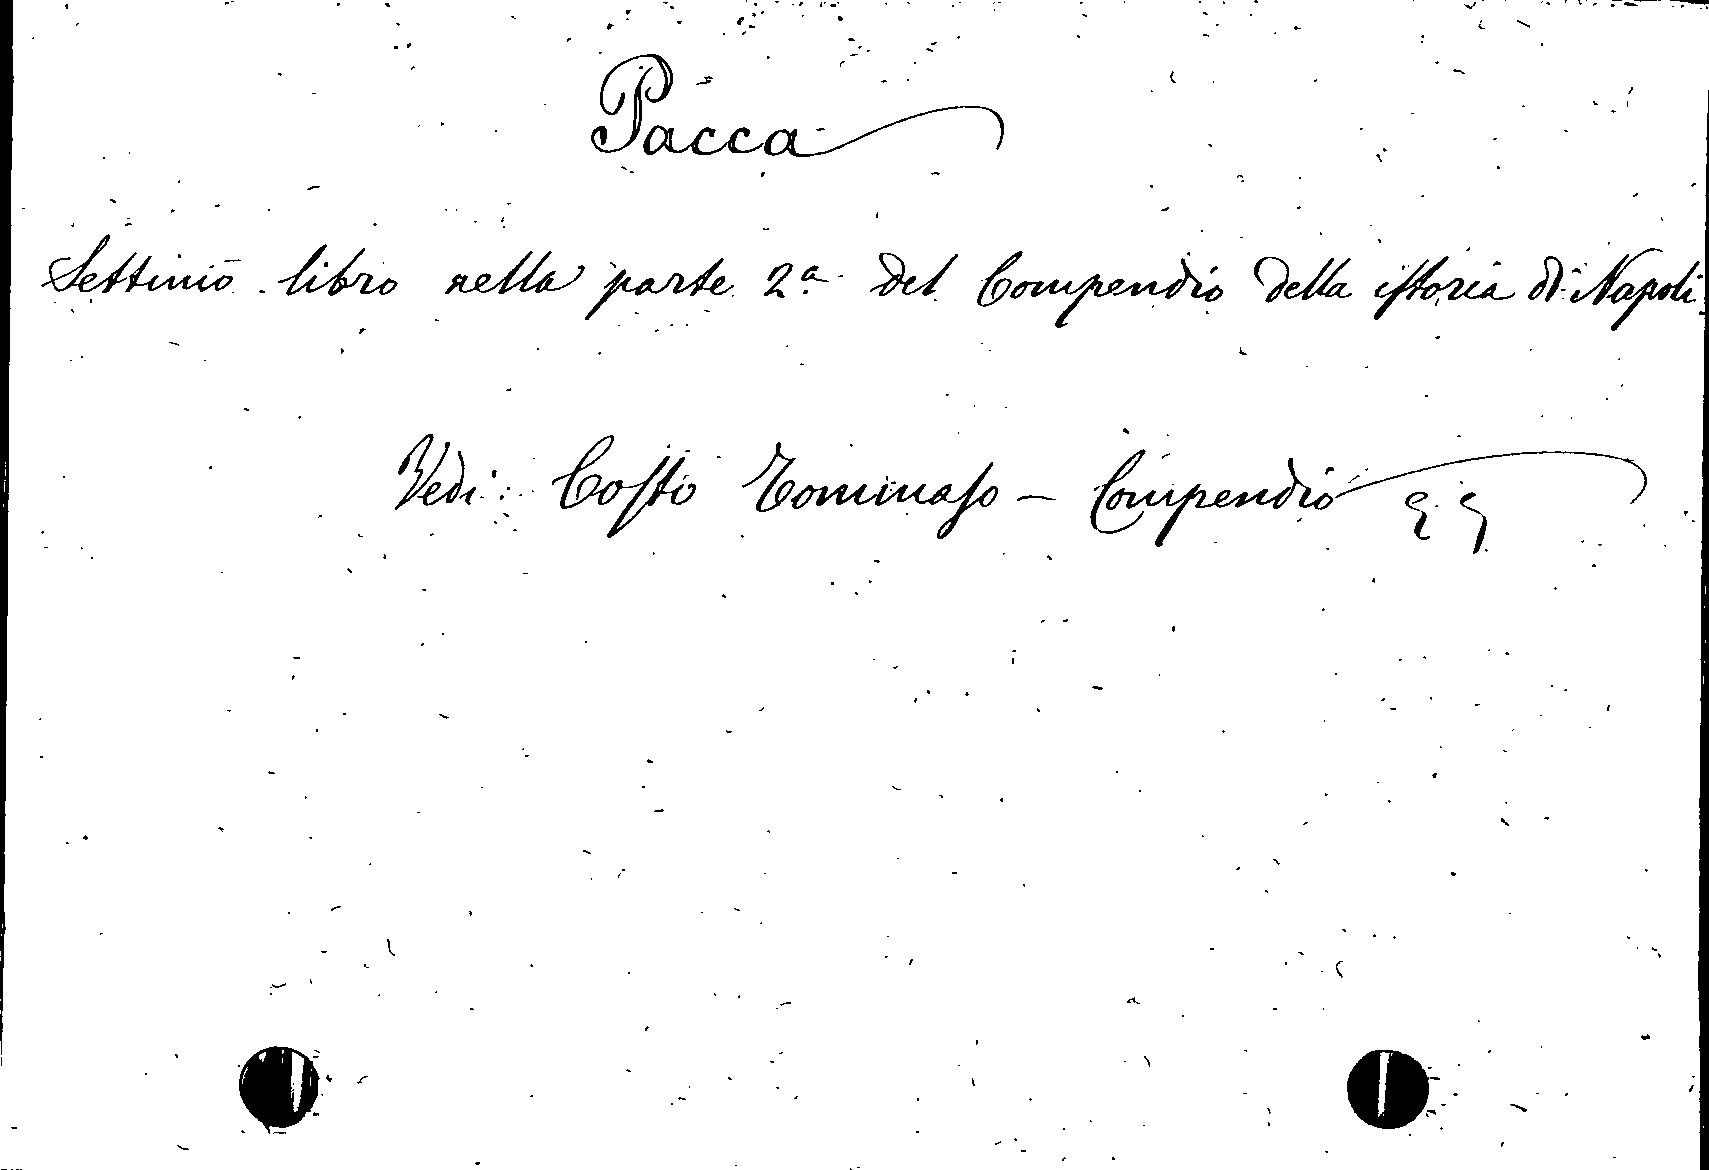 Pacca
Settimo libro nella parte 2a del Compendio della istoria di Napoli
Vedi: Costo Tommaso - Compendio